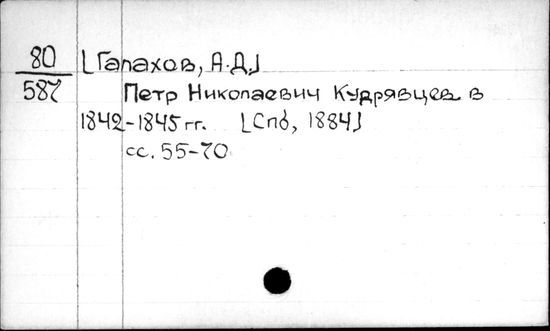 80 [Галахов, А.Д.]
587 Петр Николаевич Кудрявцев в
1842-1845 гг. [Спб, 1884]
сс. 55-70